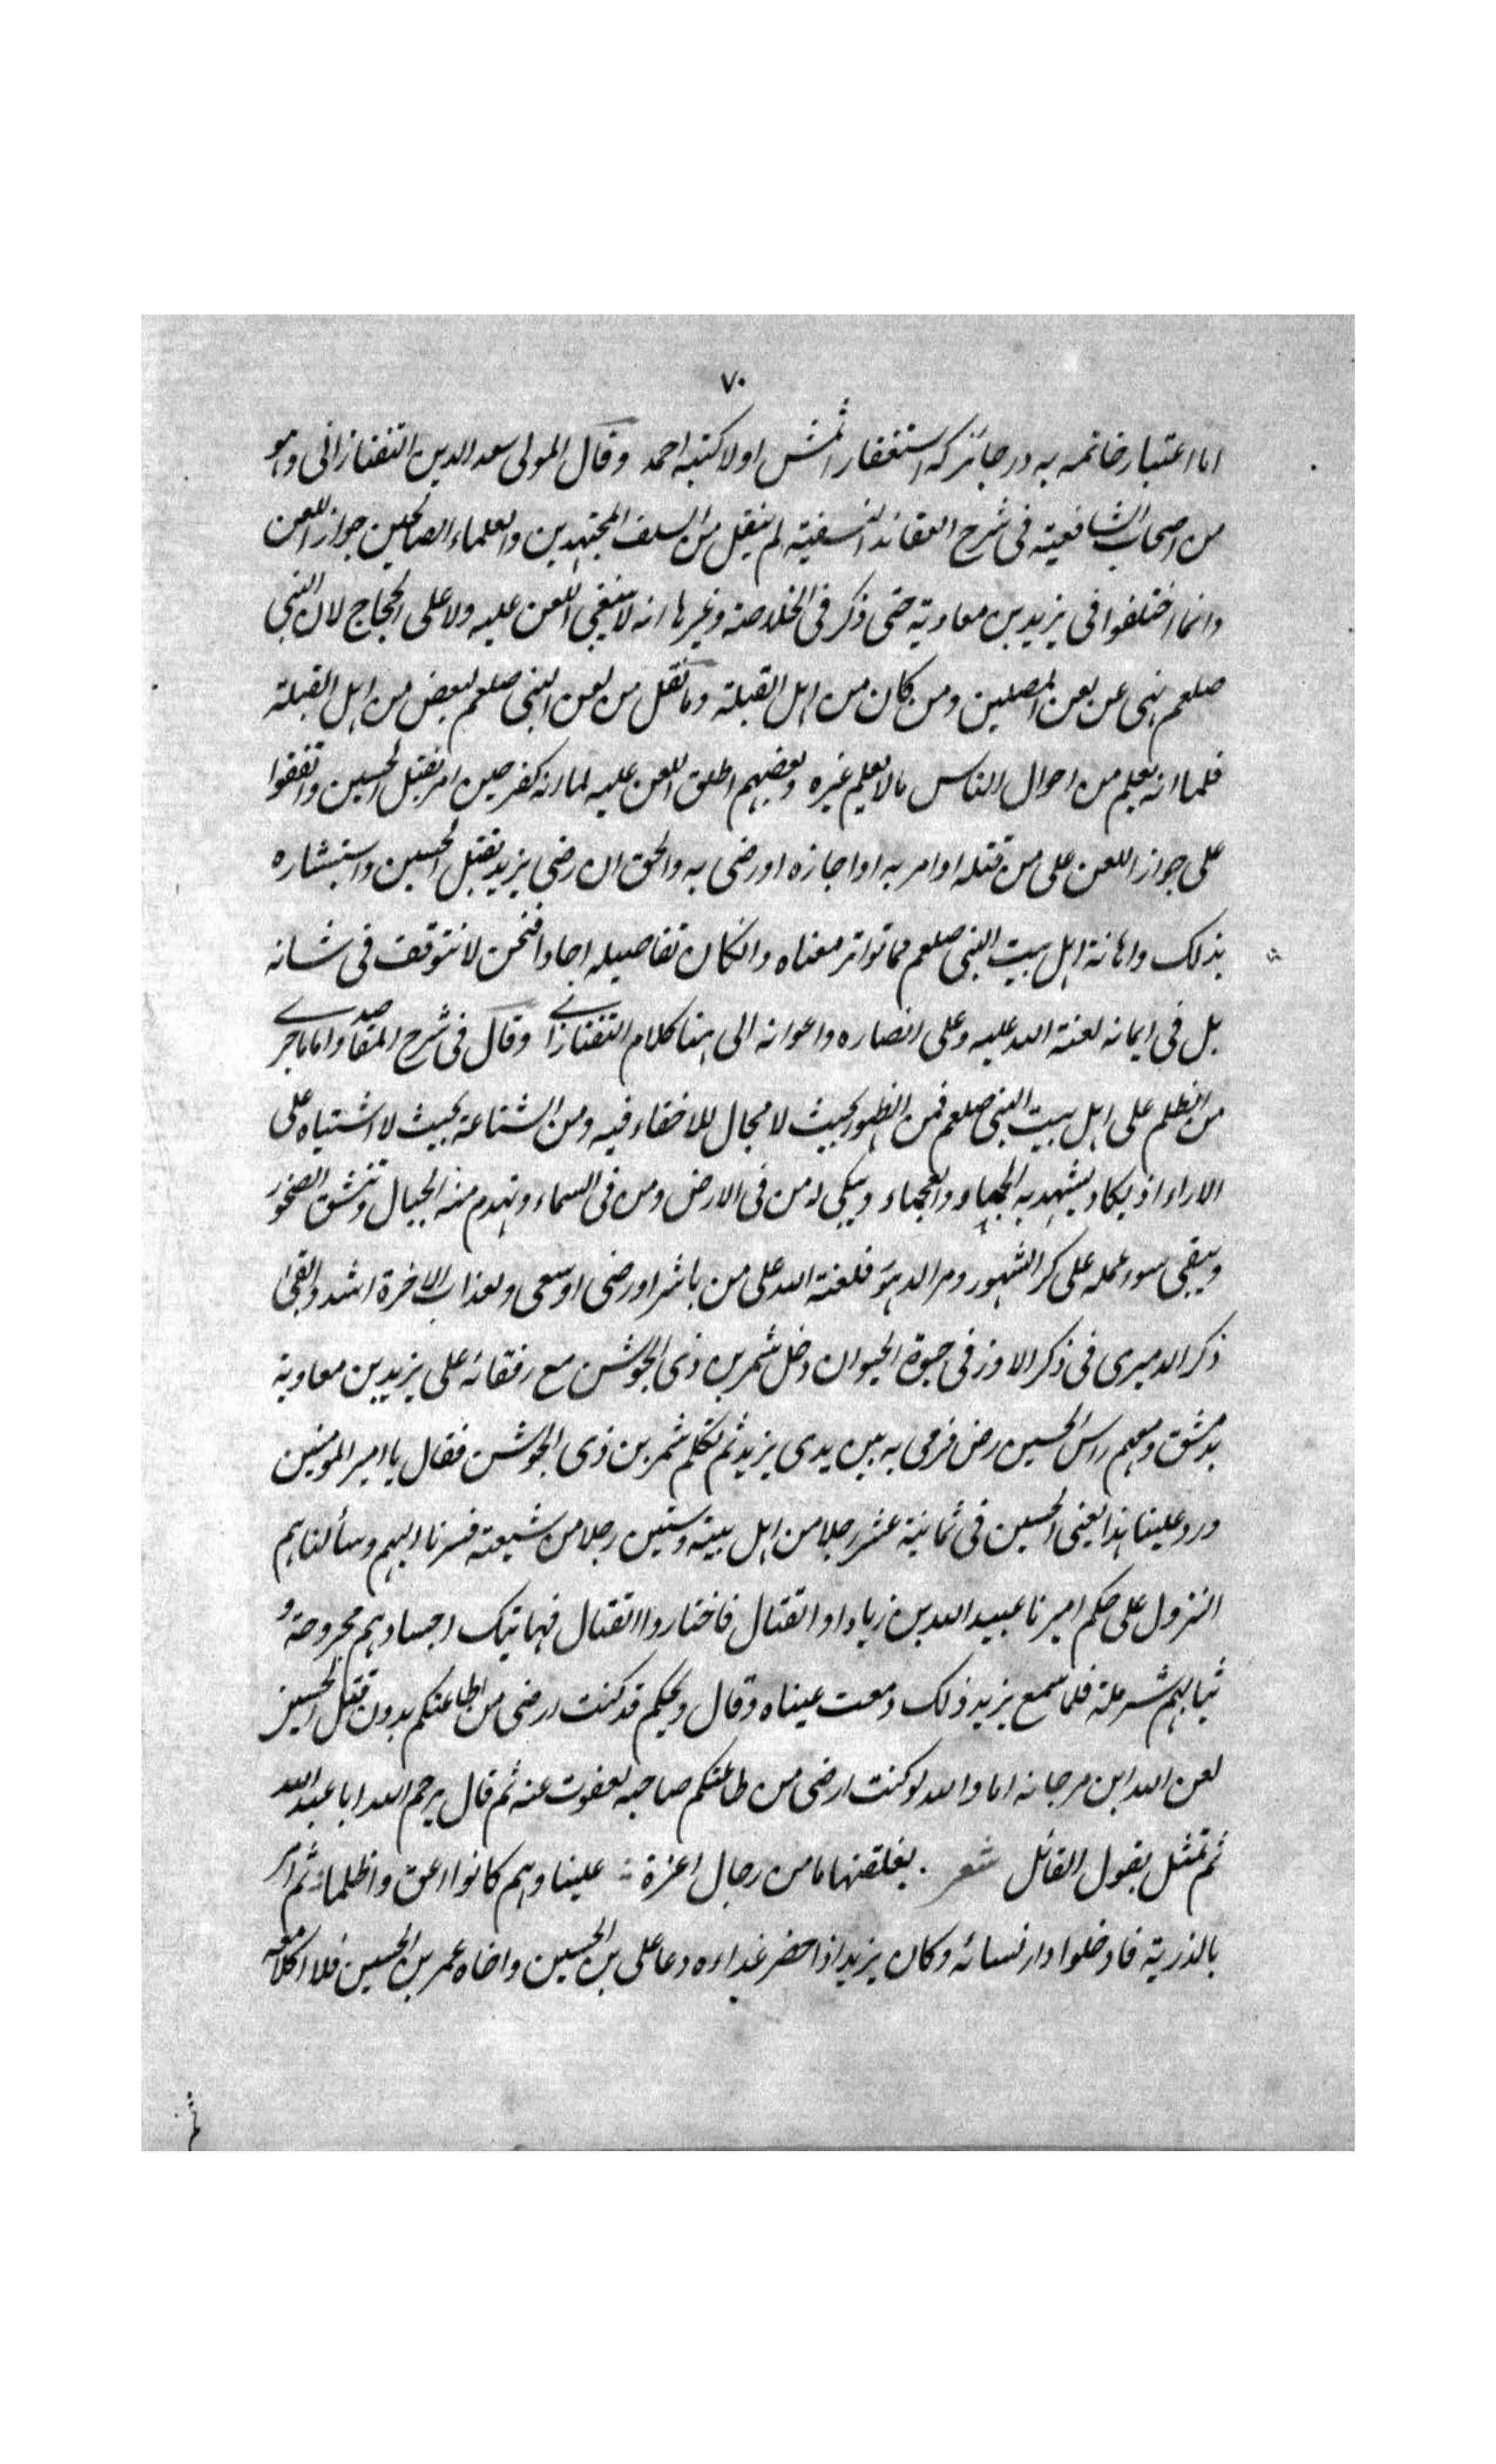 ٧٠
اما اعتبار خاتمه به در جائز كه استغفار اولا كتبه احمد وقال المولى سعد الدين التفتازانى وهو
من اصحاب الشافعية فى شرح العقائد النسفية لم ينقل من السلف المجتهدين والعلماء الصالحين جواز اللعن
وانما اختلفوا فى يزيد بن معاوية حتى ذكر فى الخلاصة وغيرها انه لا ينبغى اللعن عليه ولا على الحجاج لان النبى
صلعم نهى عن لعن المصلين ومن كان من اهل القبلة وما نقل من لعن النبى صلعم لبعض من اهل القبلة
فلما انه يعلم من احوال الناس ما لا يعلم غيره وبعضهم اطلق اللعن عليه لما انه كفر حين امر بقتل الحسين واتفقوا
على جواز اللعن على من قتله او امر به او اجازه او رضى به والحق ان رضى يزيد بقتل الحسين واستبشاره
بذلك واهانة اهل بيت النبى صلعم مما تواتر معناه وانكان تفاصيله احادا فنحن لا نتوقف فى شانه
بل فى ايمانه لعنة الله عليه وعلى انصاره واعوانه الى هنا كلام التفتازانى وقال فى شرح المقاصد واما ما جرى
من الظلم على اهل بيت النبى صلعم فمن الظهور بحيث لا مجال للاخفاء فيه ومن الشناعة بحيث لا اشتباه على
الاراء اذ يكاد يشهد به الجماد والعجماء ويبكى له من فى الارض ومن فى السماء وتهدم منه الجبال وتنشق الصخور
ويبقى سوء عمله على كر الشهور ومر الدهور فلعنة الله على من باشر او رضى او سعى ولعذاب الاخرة اشد وابقى
ذكر الدميرى فى ذكر الاوز فى حيوة الحيوان دخل شمر بن ذى الجوشن مع رفقائه على يزيد بن معاوية
بدمشق ومعهم راس الحسين رض فرمى به بين يدى يزيد ثم تكلم شمر بن ذى الجوشن فقال يا امير المومنين
ورد علينا هذا يعنى الحسين فى ثمانية عشر رجلا من اهل بيته وستين رجلا من شيعته فسرنا اليهم وسألناهم
النزول على حكم اميرنا عبيد الله بن زياد او القتال فاختاروا القتال فهاتيك اجسادهم مجروحة و
ثيابهم شرملة فلما سمع يزيد ذلك دمعت عيناه وقال ويحكم قد كنت ارضى من اطاعتكم بدون قتل الحسين
لعن الله ابن مرجانه اما والله لو كنت ارضى من طاعتكم صاحبه لعفوت عنه ثم قال يرحم الله ابا عبد الله
ثم تمثل بقول القائل شعر . يفلقن هاما من رجال اعزة : علينا وهم كانوا اعق واظلما : ثم امر
بالذرية فادخلوا دار نسائه وكان يزيد اذا حضر غداءه دعا على بن الحسين واخاه عمر بن الحسين فلا اكلا معه